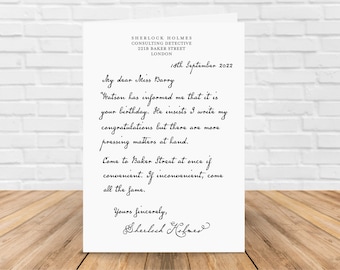 SHERLOCK HOLMES
CONSULTING DETECTIVE
221B BAKER STREET
LONDON
18th September 2022
My dear Miss Barry
Watson has informed me that it is
your birthday. He insists I write my
congratulations but there are more
pressing matters at hand.
Come to Baker Street at once if
convenient. If inconvenient, come
all the same.
Yours Sincerely,
Sherlock Holmes